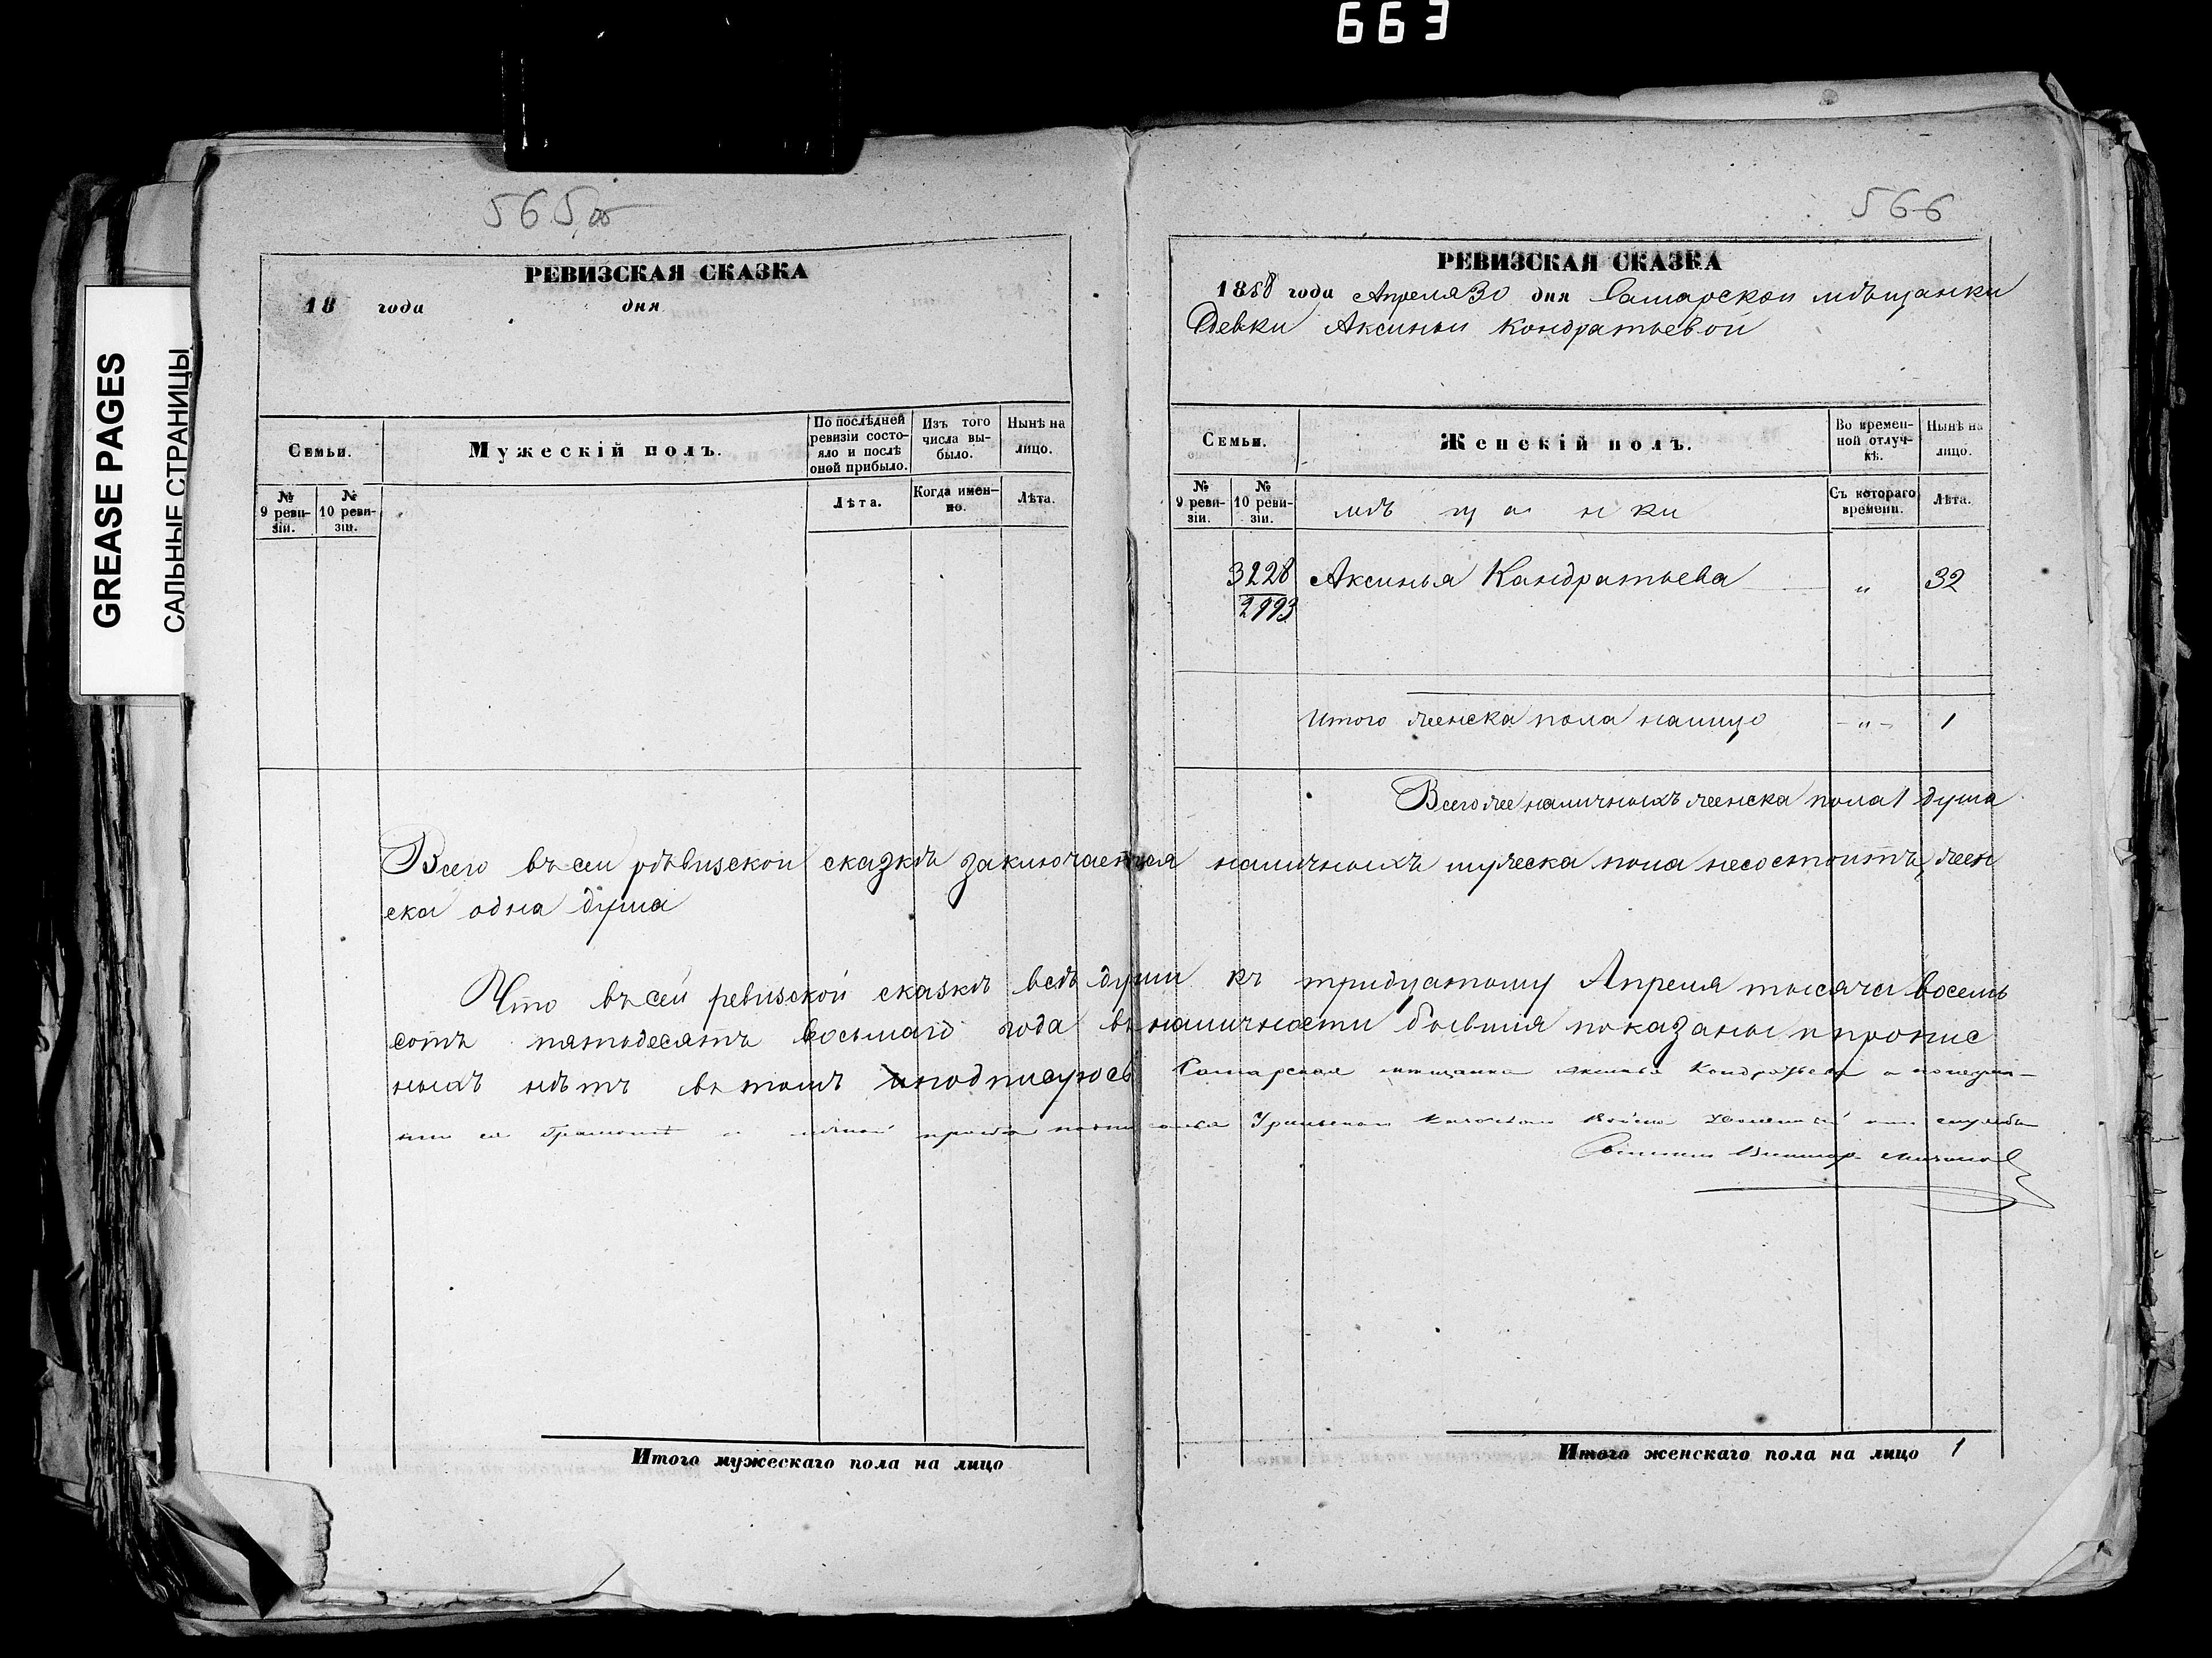 663
GREASE PAGES
САЛЬНЫЕ СТРАНИЦЫ
565 об
РЕВИЗСКАЯ СКАЗКА
18 года дня
Семьи.
Мужескій полъ.
По послѣдней ревизіи состояло и послѣ оной прибыло.
Изъ того числа выбыло.
Нынѣ на лицо.
№ 9 ревизіи.
№ 10 ревизіи.
Лѣта.
Когда именно.
Лѣта.
566
РЕВИЗСКАЯ СКАЗКА
1858 года Апреля 30 дня Самарской мѣщанки
Девки Аксиньи Кондратьевой
Семьи.
Женскій полъ.
Во временной отлучкѣ.
Нынѣ на лицо.
№ 9 ревизіи.
№ 10 ревизіи.
мѣщанки
Съ котораго времени.
Лѣта.
3228 Аксинья Кандратьева " 32
2993
Итого женска пола налицо - " - 1
Всего же наличныхъ женска пола 1 душа
Всего въ сеи рѣвизской сказкѣ заключается наличныхъ мужеска пола несостоитъ, жен
ска одна душа
Что въ сей ревизской сказкѣ всѣ души къ тридцатому Апреля тысяча восемь
сотъ пятьдесятъ восьмаго года въ наличности бывшия показаны и пропис
ныхъ нѣтъ въ томъ и подписуюсь Самарская мещанка Аксинья Кондратьева а по неуме-
нию ея грамоте и личной прозьбе Уральскаго Казачьяго Войска службы
Итого мужескаго пола на лицо
Итого женскаго пола на лицо 1